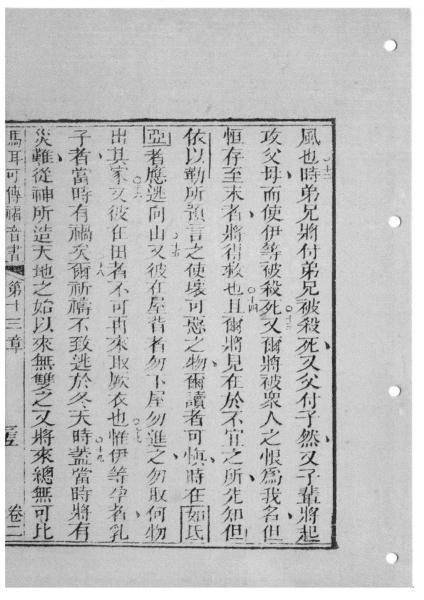 風也十二時弟兄將付弟兄被殺死又父付子然又子輩將起
攻父母而使伊等被殺死〇十三又爾將被衆人之恨爲我名但
恒存至末者將得救也〇十四且爾將見在於不宜之所先知但
依以勒所預言之使壞可惡之物爾讀者可慎時在如氏
亞者應逃向山〇十五又彼在屋背者勿下屋勿進之勿取何物
出其家〇十六又彼在田者不可再來取厥衣也〇十七惟伊等孕者乳
子者當時有禍矣〇十八爾祈禱不致逃於冬天時〇十九蓋當時將有
災難從神所造天地之始以來無雙之又將來總無可比
馬耳可傳福音書 第十三章 卷二